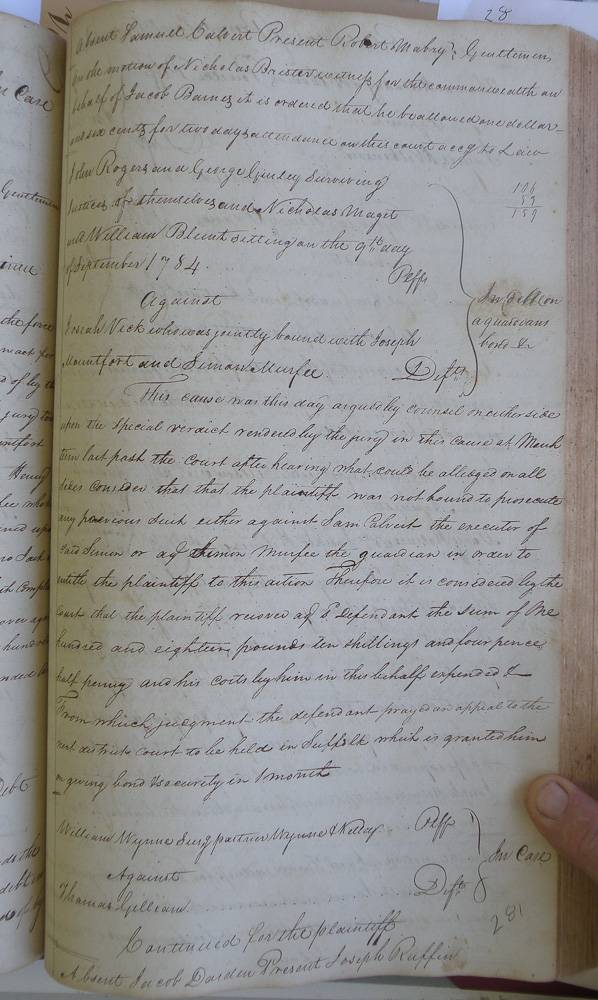 28
Absent Samuel Calvert Present Robert Mabry; Gentlemen
On the motion of Nicholas Brister witness for the commonwealth on
behalf of Jacob Barnes it is ordered that he be allowed one dollar
and six cents for two days attendance on this court accg to Law
John Rogers and George Gurley Surviving
Justices of themselves and Nicholas Maget
and William Blunt sitting on the 9th day
of September 1784.
Plffs
Against
Josiah Vick who was jointly bound with Joseph
Mountfort and Simon Murfee
Defts
In debt on
a guardians
bond &c
106
53
159
This cause was this day argued by counsel on either side
upon the special verdict rendered by the jury in this cause at March
term last past the court after hearing what could be alledged on all
sides consider that that the plaintiff was not bound to prosecute
any previous suit either against Sam Calvert the executor of
said Simon or agt Simon Murfee the guardian in order to
entitle the plaintiff to this action Therefore it is considered by the
court that the plaintiff recover agt sd Defendant the sum of One
hundred and eighteen pounds ten shillings and four pence
half penny and his costs by him in this behalf expended &
From which judgment the defendant prayed an appeal to the
next district court to be held in Suffolk which is granted him
on giving bond & security in 1 month
William Wynne Surg partner Wynne & Kelley
Plff
Against
Thomas Gilliam
Deft
In Case
Continued for the plaintiff
281
Absent Jacob Darden Present Joseph Ruffin